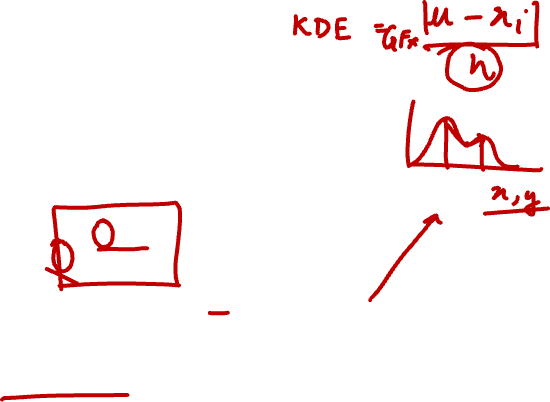 KDE = GF* |μ - xi|
h
x, y